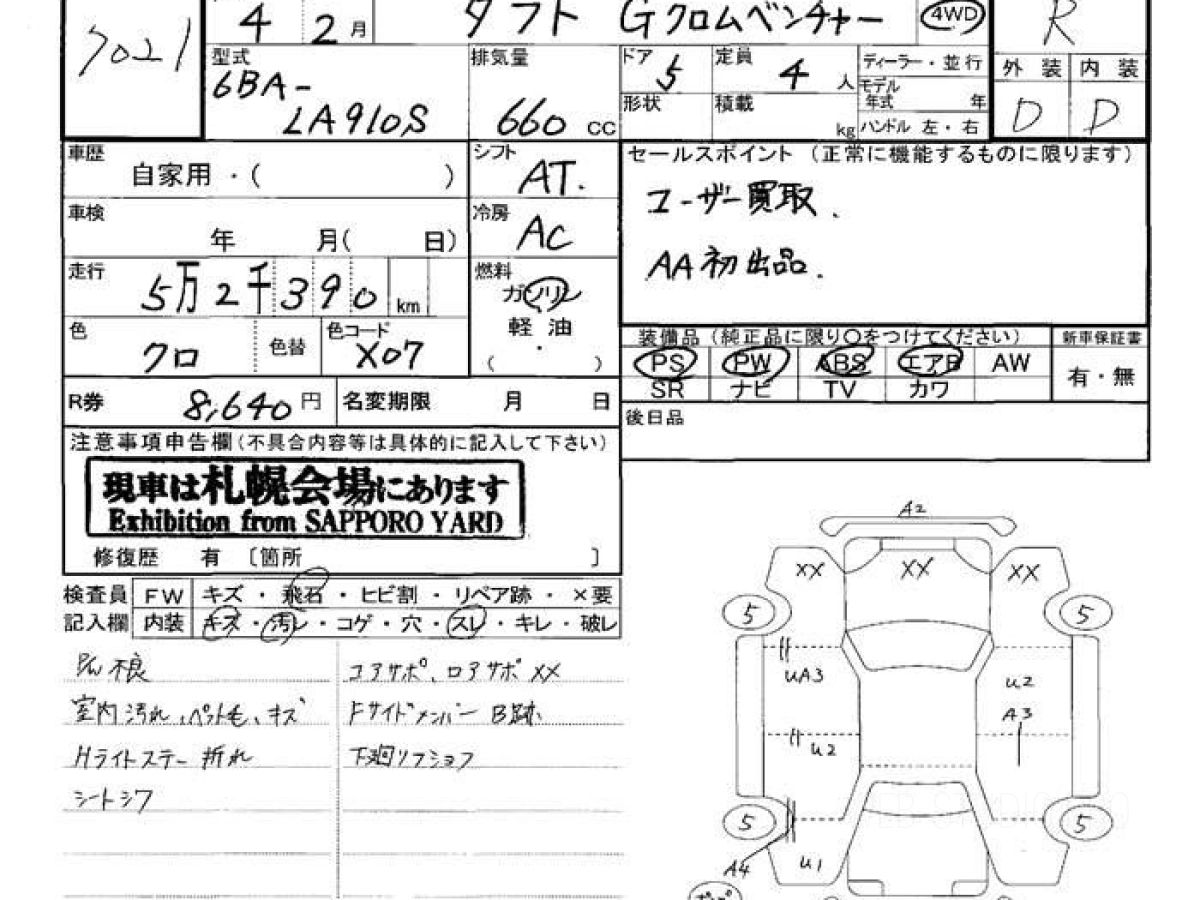 7021
4 2月 タフト Gクロムベンチャー 4WD R
型式 6BA-
LA910S
排気量 660 cc
ドア 5
定員 4 人
形状
積載 kg
ディーラー・並行
モデル年式 年
ハンドル 左・右
外装 内装
D D
車歴 自家用・( )
シフト AT.
車検 年 月( 日)
冷房 AC
走行 5万2千390 km
燃料 ガソリン
軽油
・
( )
色 クロ 色替 色コード X07
R券 8,640円 名変期限 月 日
セールスポイント (正常に機能するものに限ります)
ユーザー買取.
AA初出品.
装備品 (純正品に限り〇をつけてください) 新車保証書
PS PW ABS エアB AW 有・無
SR ナビ TV カワ
後日品
注意事項申告欄(不具合内容等は具体的に記入して下さい)
現車は札幌会場にあります
Exhibition from SAPPORO YARD
修復歴 有 〔箇所 〕
検査員 FW キズ・飛石・ヒビ割・リペア跡・×要
記入欄 内装 キズ・汚レ・コゲ・穴・スレ・キレ・破レ
P/W 不良
室内汚れ、ペット毛、キズ
Hライトステー折れ
シートシワ
コアサポ、ロアサポXX
Fサイドメンバー B跡
下廻リフショフ
A2
XX XX XX
5 5
UA3 U2
A3
U2
5 5
A4 U1